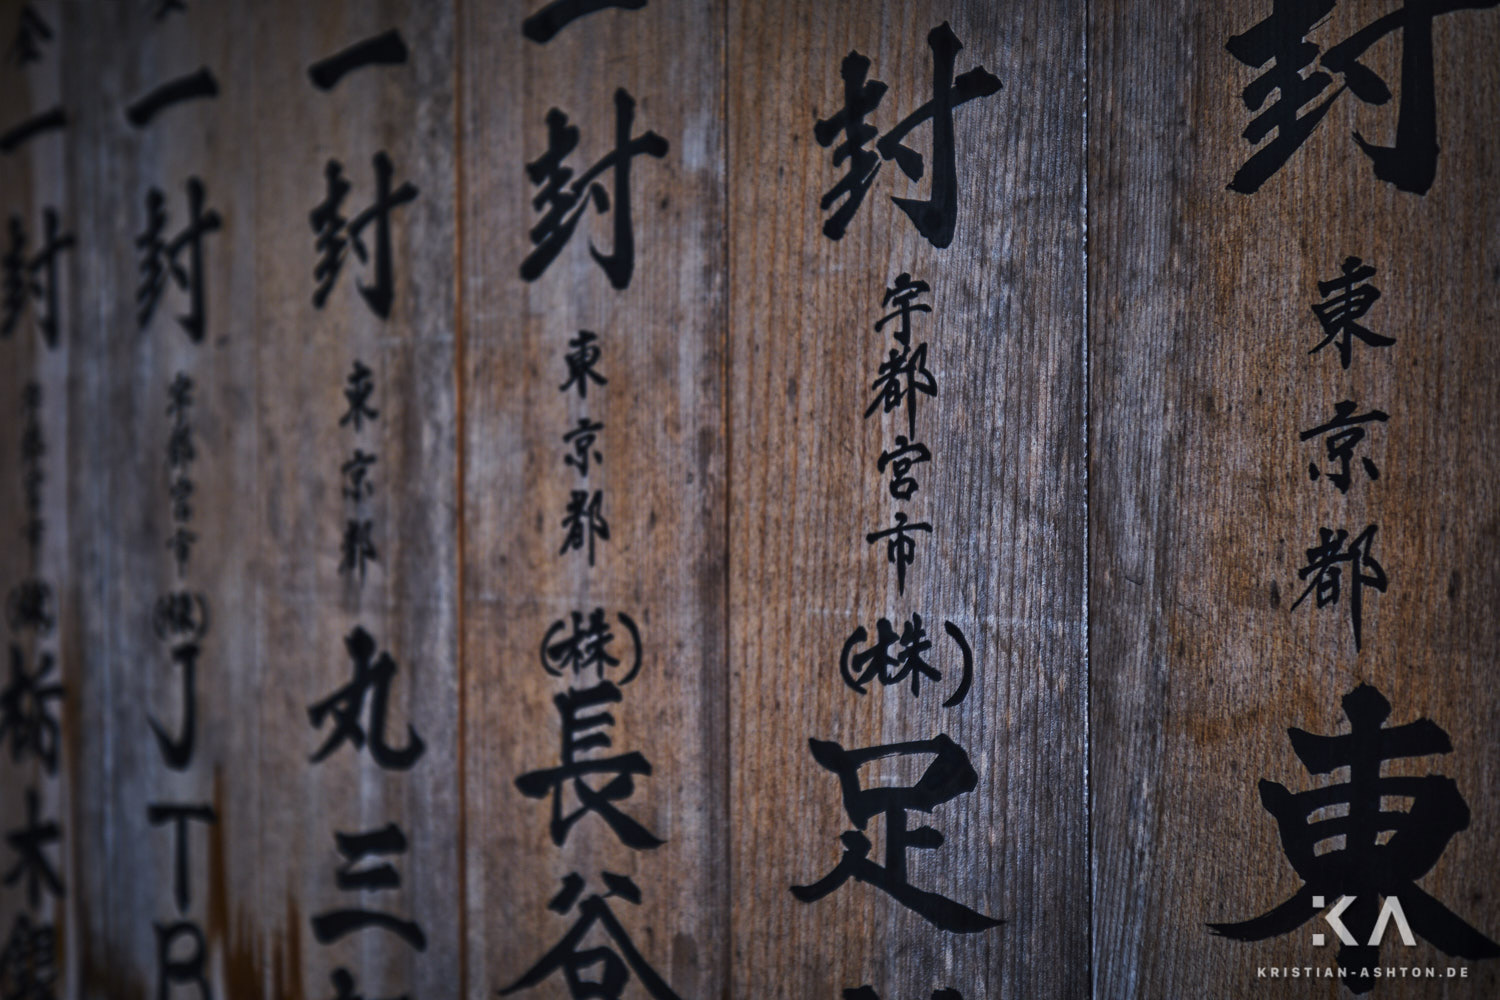 封 東京都 東
封 宇都宮市 (株) 足
一封 東京都 (株) 長谷
一封 東京都 丸三
一封 宇都宮市 (株) JTB
金一封 宇都宮市 (株) 栃木銀
KA
KRISTIAN-ASHTON.DE